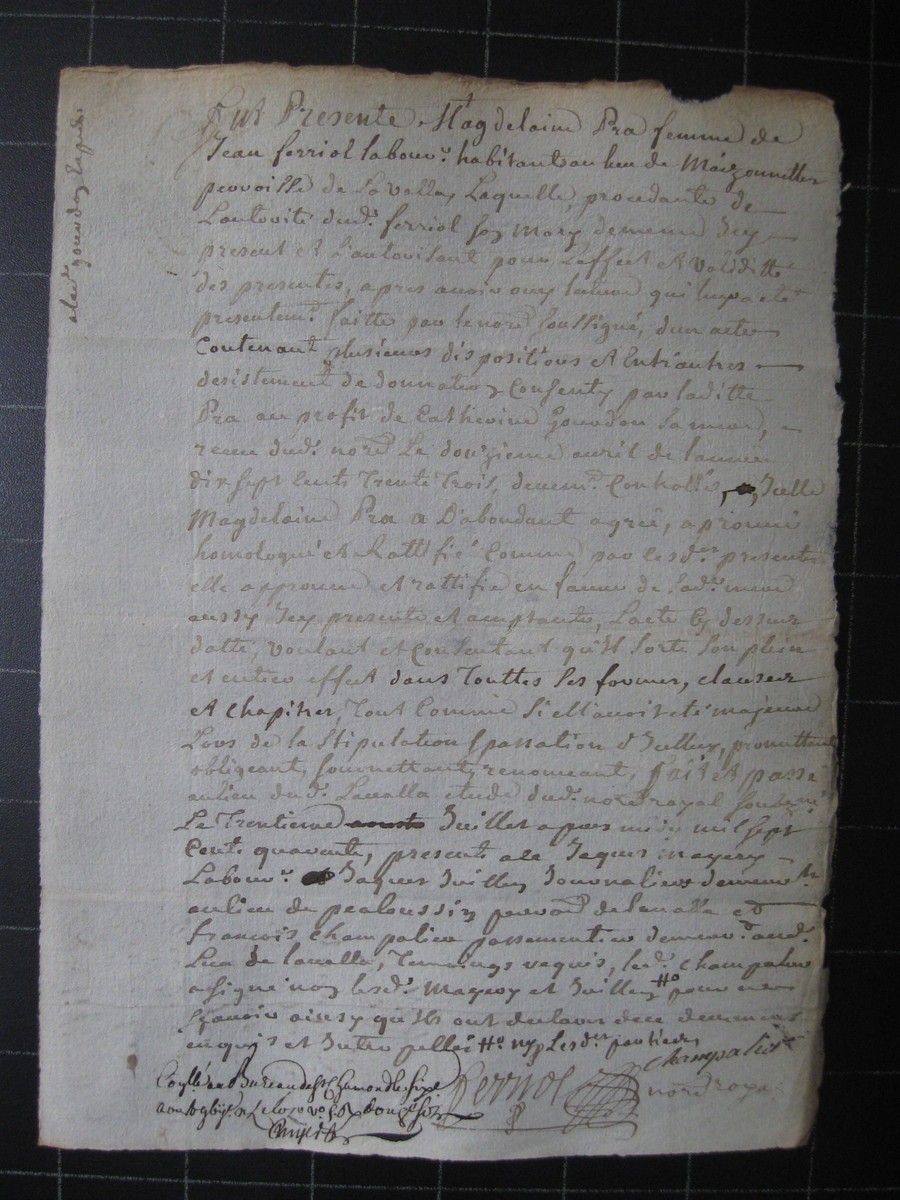 Fut Presente Magdelaine Pra femme de
Jean ferriol labour.r habitant au lieu de Maizonnettes
parroisse de Lavalla, Laquelle, procedante de
Lautorité dud.t ferriol son Mary, demême Icy
present et L'autorisant pour L'effect et validitté
des presentes, apres avoir ouy lecture qui luy a eté
presentem.t faitte par le nore. soussigné, d'un acte
Contenant plusieurs dispositions et Entr'autres
desistement de donnation Consenty par laditte
Pra au profit de Catherine Gourdon sa mere,
receu dud.t nore. Le douzieme avril de l'année
dix sept cents Trente Trois, deuem.t Controllé, Icelle
Magdelaine Pra a D'abondant agreé, aprouvé
homologué et Rattifié Comme par ces d.tes presentes
elle approuve et rattifie en faveur de sad.te mere
aussy Icy presente et acceptante, L'acte Cy dessus
datté, voulant et Consentant qu'il sorte son plein
et entier effect dans Touttes ses formes, clauses
et chapitres, Tout Comme si ell'avoit eté majeure
Lors de la Stipulation & passation d'Icelluy, promettant
obligeant, soumettant, renonceant, fait et passé
au lieu dud.t Lavalla etude dud.t nore. royal soubsigné
Le Trentieme Juillet apres midy mil sept
Cents quarente, presents a ce Jaques mayery
Labour.r Jaques Juillen Journalier demeur.ts
au lieu de pealoussin parr.e de lavalla et
francois Champalier passementier demeur.t aud.t
Lieu de lavalla, Temoings requis, led.t Champalier
a signé non lesd.ts Mayery et Juillen pour ne
Sçavoir ainsy qu'ils ont declaré de ce deuement
enquis et Interpellés ny Lesd.tes parties
Champalier
Ferriol nore royal
Con.llé au Bureau de St Chamond le six